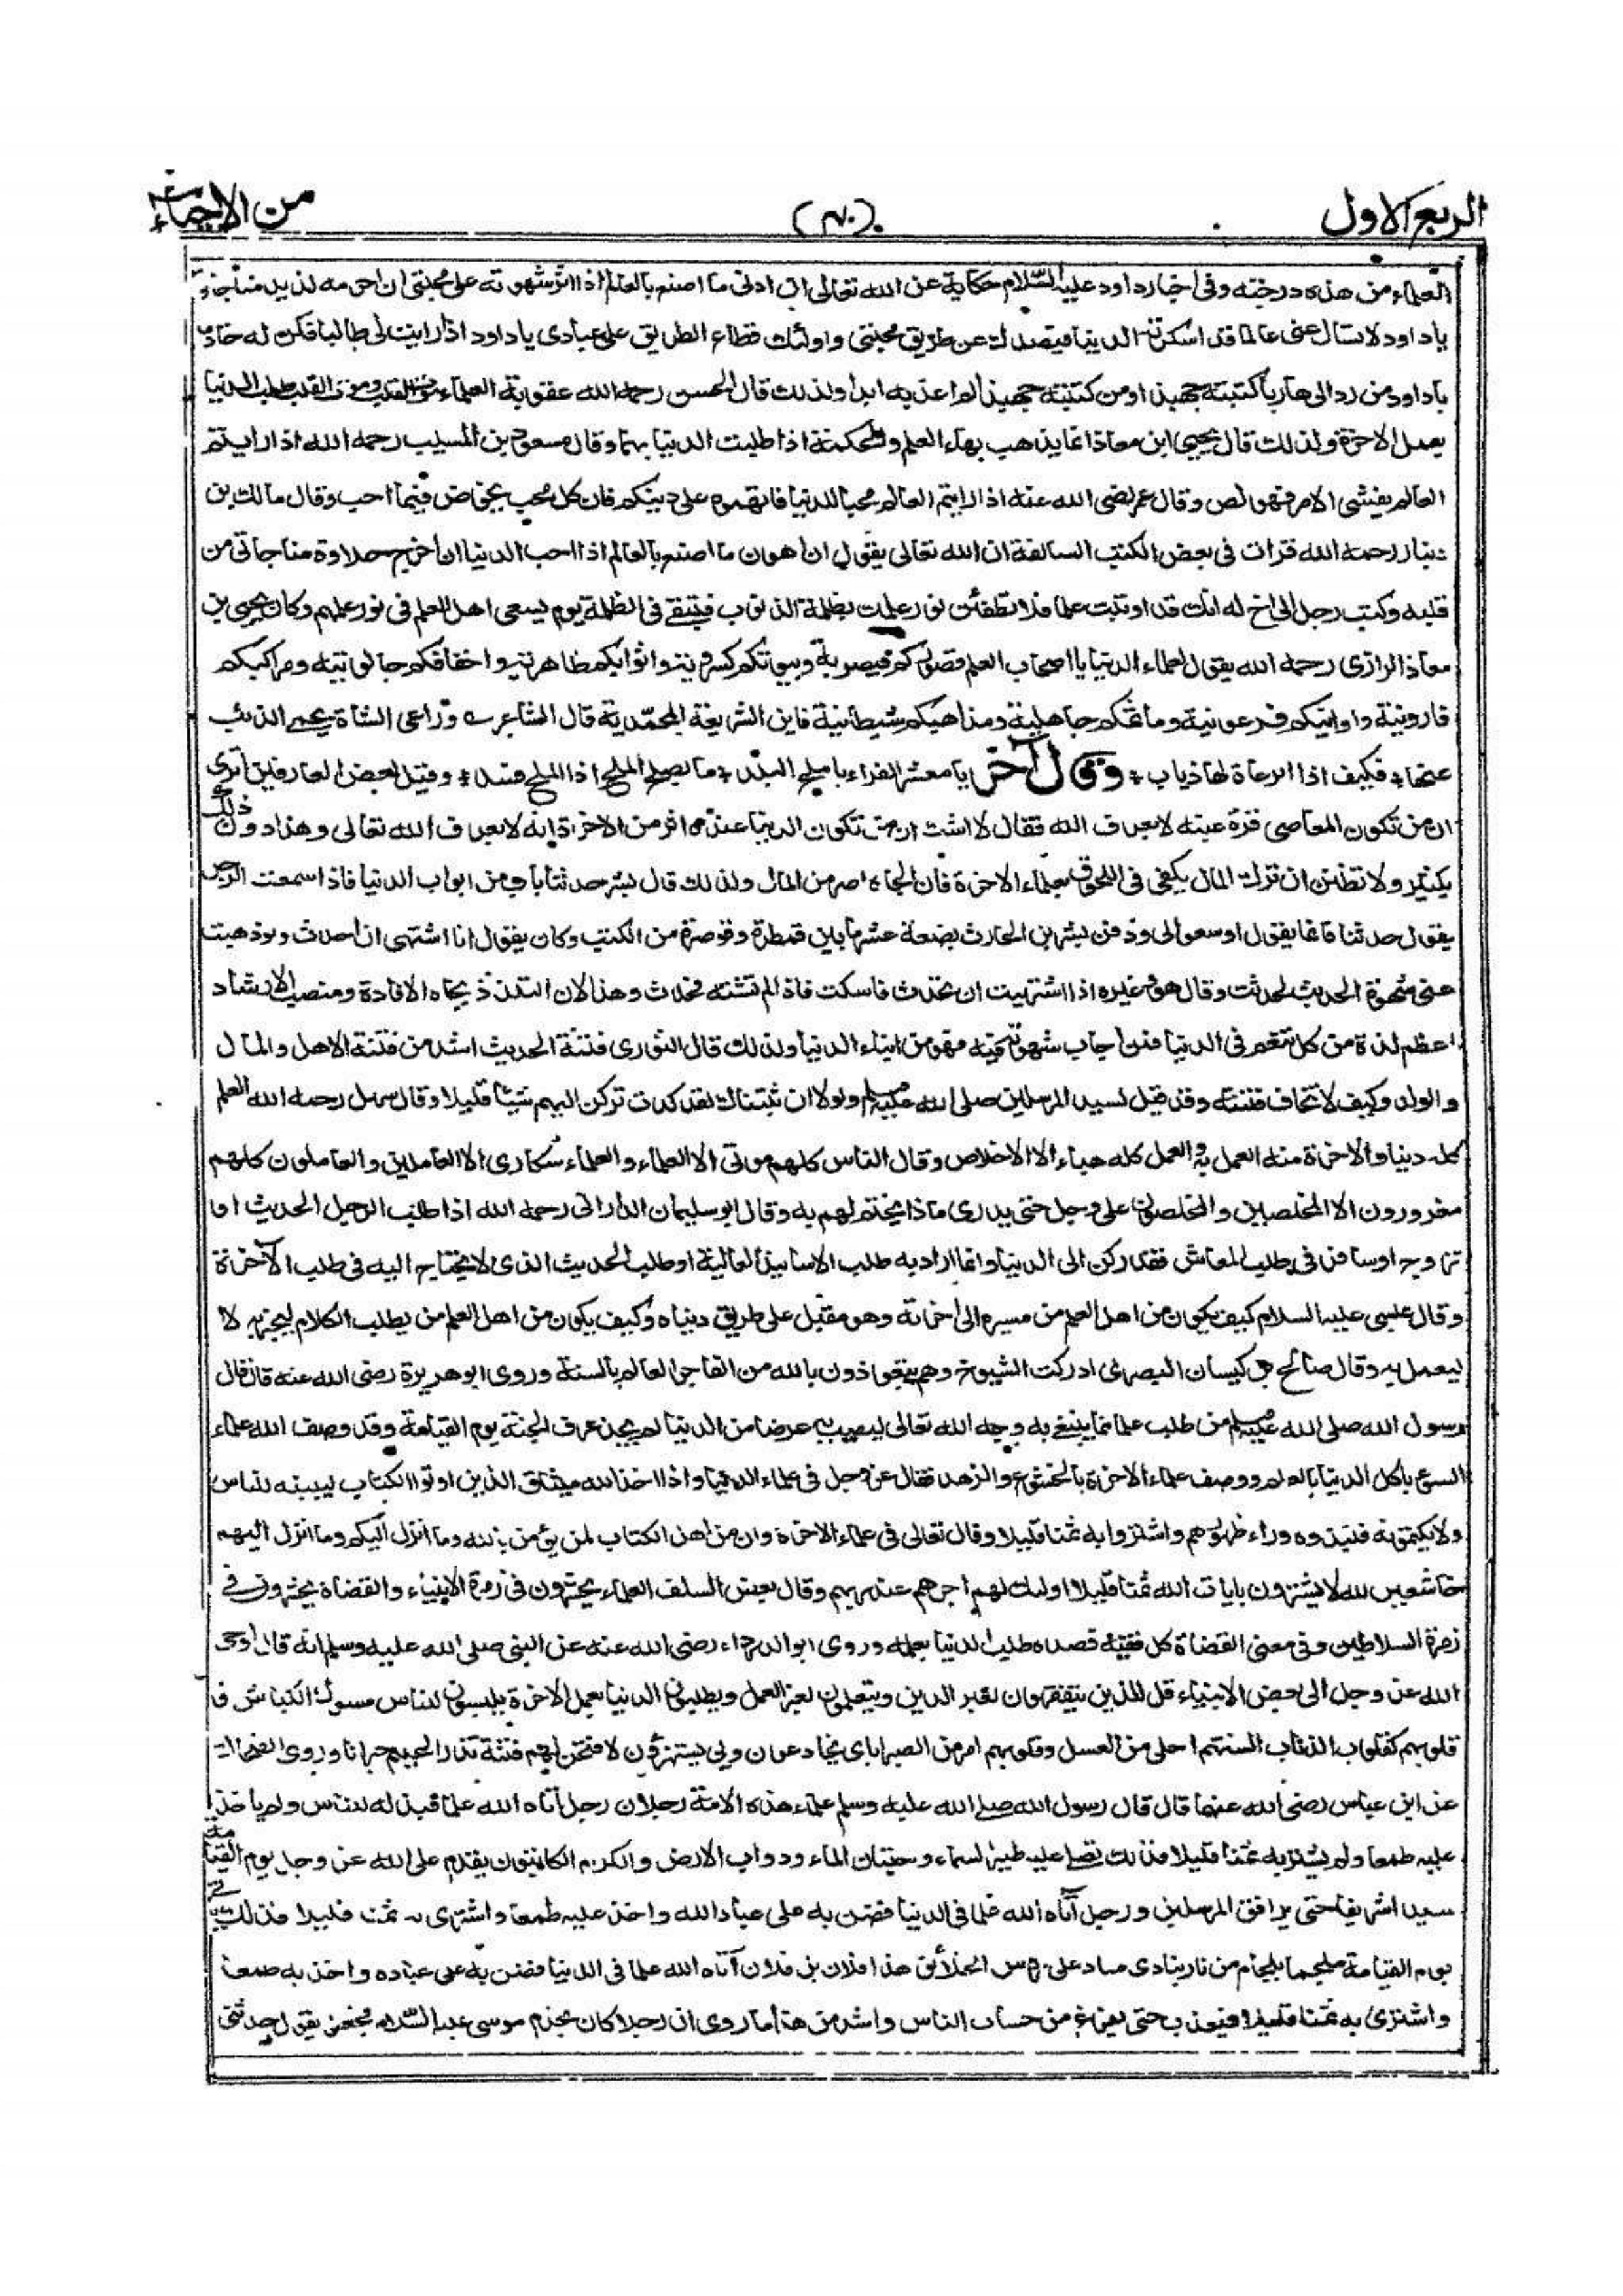 الربع الاول (٤٠) من الاحياء
العلماء من هذه درجته وفى اخبار داود عليه السلام حكاية عن الله تعالى ان ادنى ما اصنع بالعالم اذا اثر شهوته على محبتى ان احرمه لذيذ مناجاتى
ياداود لا تسال عنى عالما قد اسكرته الدنيا فيصدك عن طريق محبتى واولئك قطاع الطريق على عبادى ياداود اذا رايت لى طالبا فكن له خادما
ياداود من رد الى هاربا كتبته جهبذا ومن كتبته جهبذا لم اعذبه ابدا ولذلك قال الحسن رحمه الله عقوبة العلماء موت القلب وموت القلب طلب الدنيا
بعمل الاخرة ولذلك قال يحيى ابن معاذ انما يذهب بهاء العلم والحكمة اذا طلبت الدنيا بهما وقال سعيد بن المسيب رحمه الله اذا رايتم
العالم يغشى الامر فهو لص وقال عمر رضى الله عنه اذا رايتم العالم محبا للدنيا فاتهموه على دينكم فان كل محب يخوض فيما احب وقال مالك بن
دينار رحمه الله قرات فى بعض الكتب السالفة ان الله تعالى يقول ان اهون ما اصنع بالعالم اذا احب الدنيا ان اخرج حلاوة مناجاتى من
قلبه وكتب رجل الى اخ له انك قد اوتيت علما فلا تطفئن نور علمك بظلمة الذنوب فتبقى فى الظلمة يوم يسعى اهل العلم فى نور علمهم وكان يحيى بن
معاذ الرازى رحمه الله يقول لعلماء الدنيا يا اصحاب العلم قصوركم قيصرية وبيوتكم كسروية واثوابكم ظاهرية واخفافكم جالوتية ومراكبكم
قارونية واوانيكم فرعونية وماتمكم جاهلية ومذاهبكم شيطانية فاين الشريعة المحمدية قال الشاعر وراعى الشاة يحمى الذئب
عنها فكيف اذا الرعاة لها ذياب وقال آخر يا معشر القراء يا ملح البلد ما يصلح الملح اذا الملح فسد وقيل لبعض العارفين اترى
ان من تكون المعاصى قرة عينه لا يعرف الله فقال لا اشك ان من تكون الدنيا عنده اثر من الاخرة انه لا يعرف الله تعالى وهذا دون ذلك
بكثير ولا تظنن ان ترك المال يكفى فى اللحوق بعلماء الاخرة فان الجاه اضر من المال ولذلك قال بشر حدثنا باب من ابواب الدنيا فاذا سمعت الرجل
يقول حدثنا فانما يقول اوسعوا لى ودفن بشر بن الحارث بضعة عشر ما بين قمطرة وقوصرة من الكتب وكان يقول انا اشتهى ان احدث ولو ذهبت
عنى شهوة الحديث لحدثت وقال هو وغيره اذا اشتهيت ان تحدث فاسكت فاذا لم تشته فحدث وهذا لان التلذذ بجاه الافادة ومنصب الارشاد
اعظم لذة من كل تنعم فى الدنيا فمن اجاب شهوته فيه فهو من ابناء الدنيا ولذلك قال الثورى فتنة الحديث اشد من فتنة الاهل والمال
والولد وكيف لا تخاف فتنته وقد قيل لسيد المرسلين صلى الله عليه وسلم ولولا ان ثبتناك لقد كدت تركن اليهم شيئا قليلا وقال سهل رحمه الله العلم
كله دنيا والاخرة منه العمل به والعمل كله هباء الا الاخلاص وقال الناس كلهم موتى الا العلماء والعلماء سكارى الا العاملين والعاملون كلهم
مغرورون الا المخلصين والمخلصون على وجل حتى يدرى ماذا يختم لهم به وقال ابو سليمان الدارانى رحمه الله اذا طلب الرجل الحديث او
تزوج او سافر فى طلب المعاش فقد ركن الى الدنيا وانما اراد به طلب الاسانيد العالية او طلب الحديث الذى لا يحتاج اليه فى طلب الآخرة
وقال عيسى عليه السلام كيف يكون من اهل العلم من مسيره الى اخرته وهو مقبل على طريق دنياه وكيف يكون من اهل العلم من يطلب الكلام ليخبر به لا
ليعمل به وقال صالح بن كيسان البصرى ادركت الشيوخ وهم يتعوذون بالله من الفاجر العالم بالسنة وروى ابو هريرة رضى الله عنه قال قال
رسول الله صلى الله عليه وسلم من طلب علما مما يبتغى به وجه الله تعالى ليصيب به عرضا من الدنيا لم يجد عرف الجنة يوم القيامة وقد وصف الله علماء
السوء باكل الدنيا بالعلم ووصف علماء الاخرة بالخشوع والزهد فقال عز وجل فى علماء الدنيا واذا اخذ الله ميثاق الذين اوتوا الكتاب ليبيننه للناس
ولا يكتمونه فنبذوه وراء ظهورهم واشتروا به ثمنا قليلا وقال تعالى فى علماء الاخرة وان من اهل الكتاب لمن يؤمن بالله وما انزل اليكم وما انزل اليهم
خاشعين لله لا يشترون بايات الله ثمنا قليلا اولئك لهم اجرهم عند ربهم وقال بعض السلف العلماء يحشرون فى زمرة الانبياء والقضاة يحشرون فى
زمرة السلاطين وفى معنى القضاة كل فقيه قصده طلب الدنيا بعلمه وروى ابو الدرداء رضى الله عنه عن النبى صلى الله عليه وسلم انه قال اوحى
الله عز وجل الى بعض الانبياء قل للذين يتفقهون لغير الدين ويتعلمون لغير العمل ويطلبون الدنيا بعمل الاخرة يلبسون للناس مسوك الكباش
قلوبهم كقلوب الذئاب السنتهم احلى من العسل وقلوبهم امر من الصبر اياى يخادعون وبى يستهزؤن لافتحن لهم فتنة تذر الحليم حيرانا وروى الضحاك
عن ابن عباس رضى الله عنهما قال قال رسول الله صلى الله عليه وسلم علماء هذه الامة رجلان رجل آتاه الله علما فبذله للناس ولم ياخذ
عليه طمعا ولم يشتر به ثمنا قليلا فذلك يصلى عليه طير السماء وحيتان الماء ودواب الارض والكرام الكاتبون يقدم على الله عز وجل يوم القيامة
سيدا شريفا حتى يرافق المرسلين ورجل آتاه الله علما فى الدنيا فضن به على عباد الله واخذ عليه طمعا واشترى به ثمنا قليلا فذلك ياتى
يوم القيامة ملجما بلجام من نار ينادى مناد على رؤس الخلائق هذا فلان بن فلان آتاه الله علما فى الدنيا فضن به على عباده واخذ به طمعا
واشترى به ثمنا قليلا فيعذب حتى يفرغ من حساب الناس واشد من هذا ما روى ان رجلا كان يخدم موسى عليه السلام فجعل يقول حدثنى